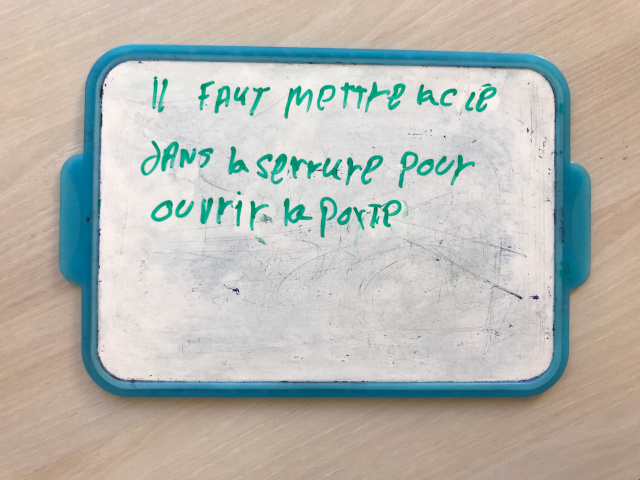 Il FAUT mettre la clé
DANS la serrure pour
ouvrir la porte